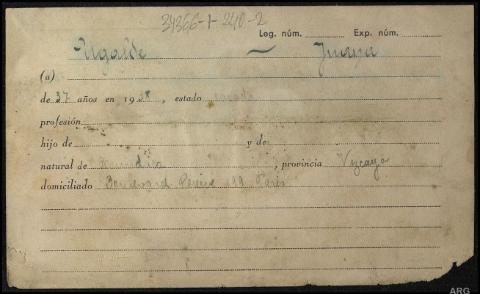 34366-1-240-2
Leg. núm. Exp. núm.
Ugalde — Juana
(a)
de 37 años en 1938, estado casada
profesión
hijo de y de
natural de , provincia Vizcaya
domiciliado Boulevard Pereire 199 París
ARG